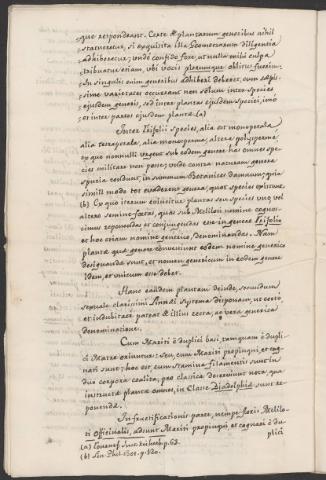 que respondeant. Certe & plantarum generibus nihil
statueretur, si exquisita illa Geometrarum diligentia
adhiberetur; unde confido fore, ut nulli mihi culpa
tribuatur etiam, ubi vocis plerumque oblitus fuerim.
In singulis enim generibus adhiberi deberet, cum saepis-
sime varietates occurrant non solum inter species
ejusdem generis, sed inter plantas ejusdem speciei, imo
et inter partes ejusdem plantae. (a)
Inter Trifolii species, alia est monopetala
alia tetrapetala, alia monosperma, altera polysperma;
ex quo nonnulli negent sub eodem genere has omnes spe-
cies militare non posse; unde contra naturam genera
spuria condunt, in summum Botanices damnum; quia
simili modo tot evaderent genera, quot species existunt.
(b) Ex quo iterum
altera semine foetas, quas sub Meliloti nomine cognos-
cimus reponendas et conjungendas esse in genere Trifolio
et hoc etiam nomine generico, denominandas. Nam
plantae quae genere conveniunt eodem nomine generico
designandae sunt, et nomen genericum in eodem genere
idem, et unicum esse debet.
Hanc eandem plantam deinde, secundum
sexuale clarissimi Linnaei systema disponam, ut certo,
et indubitate pateat & illius certa, ac vera generica
denominatione.
Cum Mariti e duplici basi, tamquam e dupli-
ci Matre oriuntur: seu, cum Mariti propinqui, et cog-
nati sunt; hoc est, cum stamina filamentis sunt in
duo corpora coalita, pro classica
instructae plantae omnes, in Classe Diadelphia sunt re-
ponendae.
In fructificationis parte, nempe flore Melilo-
ti Officinalis, adsunt Mariti propinqui et cognati e du-
plici
(a) Tournef. Inst. rei herb. p. 63.
(b) Lin. Phil. Bot. p. 120.